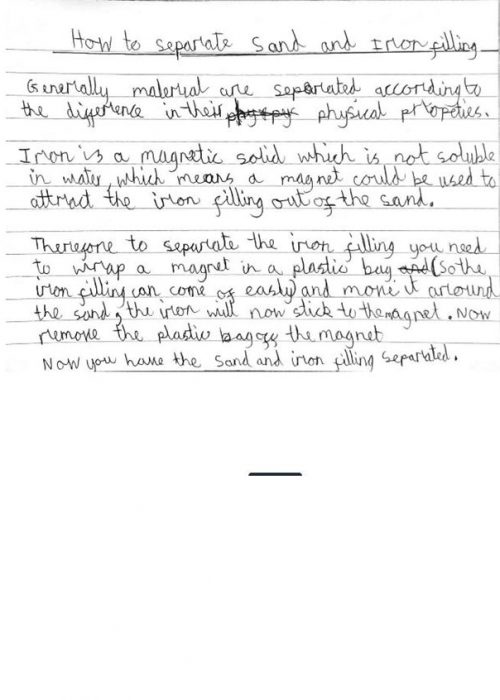 How to separate Sand and Iron filling
Generally material are separated according to
the difference in their physical propeties.
Iron is a magnetic solid which is not soluble
in water, which means a magnet could be used to
attract the iron filling out of the sand.
Therefore to separate the iron filling you need
to wrap a magnet in a plastic bag and (so the
iron filling can come of easly) and move it around
the sand, the iron will now stick to the magnet. Now
remove the plastic bag off the magnet
Now you have the sand and iron filling separated.